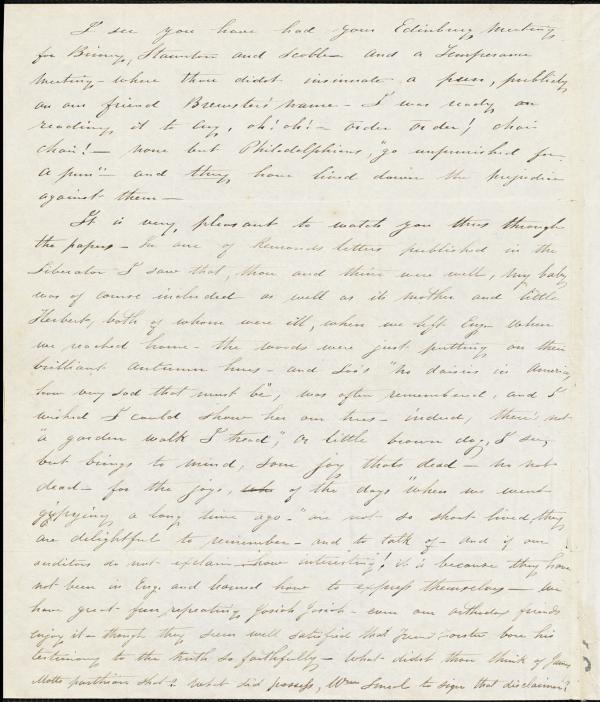 I see you have had your Edinburg meeting
for Birney, Staunton and Scoble and a Temperance
meeting - where thou didst insinuate a pun, publicly
on our friend Brewster's name - I was ready on
reading it to cry, oh! oh! - order order! chair
chair! - none but Philadelphians, "go unpunished for
a pun" - and they have lived down the prejudice
against them -
It is very, pleasant to watch you thus through
the papers - In one of Remonds letters published in the
Liberator I saw that, thou and thine were well, my baby
was of course included as well as its mother and little
Herbert, both of whom were ill, when we left Eng. When
we reached home - the woods were just putting on their
brilliant autumn hues - and "no daisies in America,
how very sad that must be", was often remembered, and I
wished I could show her our trees - indeed, there's not
"a garden walk I tread", or little brown dog, I see,
but brings to mind, some joy thats dead - no not
dead - for the joys, of the days "when we went
gypsying a long time ago -" are not so short lived, they
are delightful to remember - and to talk of - and if our
auditors do not exclaim - how interesting! it is because they have
not been in Eng. and learned how to express themselves - we
have great fun, repeating Josiah Josiah - even our orthodox friends
enjoy it - though they seem well satisfied that Friend bore his
testimony to the truth so faithfully - What didst thou think of James
Motts parthian shot? what did possess, Wm to sign that disclaimer?